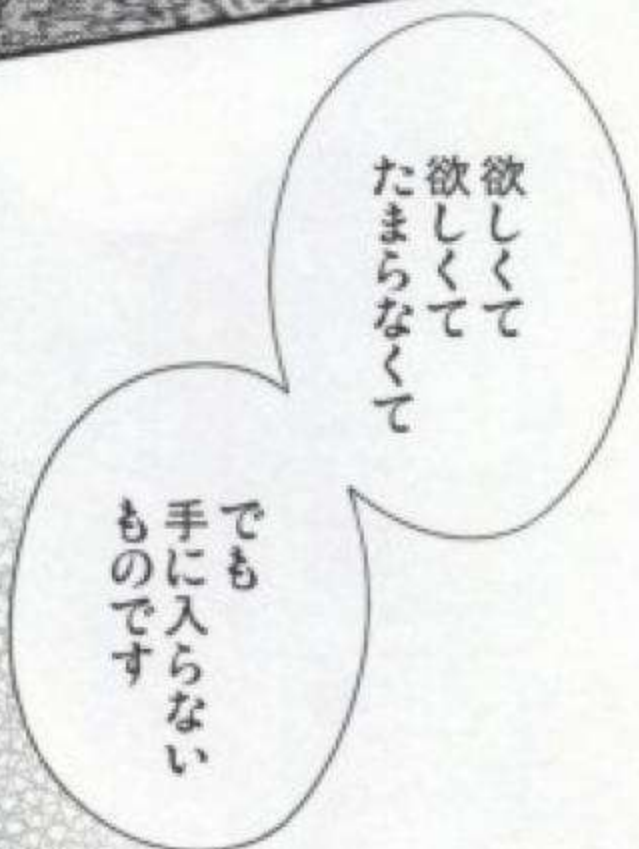 欲しくて
欲しくて
たまらなくて
でも
手に入らない
ものです